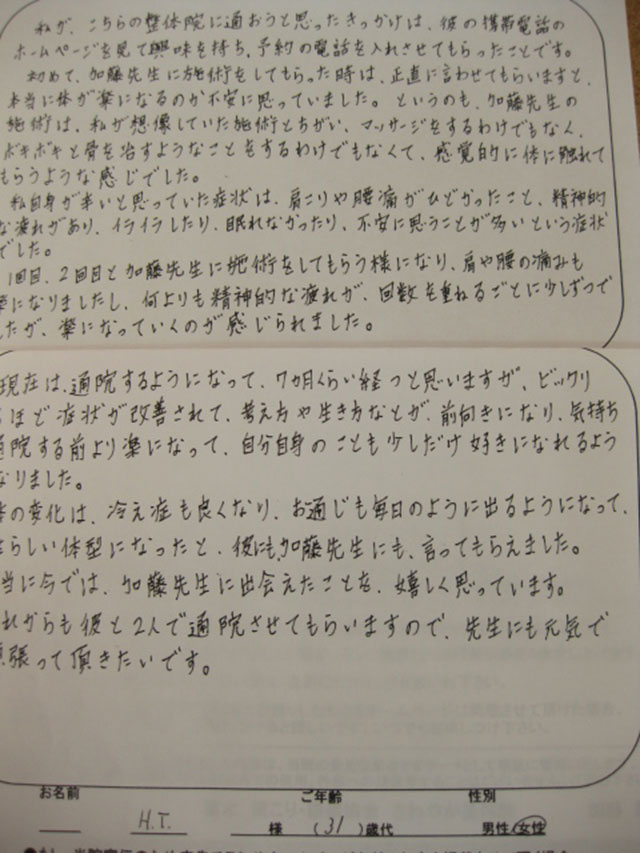 私が、こちらの整体院に通おうと思ったきっかけは、彼の携帯電話の
ホームページを見て興味を持ち、予約の電話を入れさせてもらったことです。
初めて、加藤先生に施術をしてもらった時は、正直に言わせてもらいますと、
本当に体が楽になるのか不安に思っていました。というのも、加藤先生の
施術は、私が想像していた施術とちがい、マッサージをするわけでもなく、
ボキボキと骨を治すようなことをするわけでもなくて、感覚的に体に触れて
もらうような感じでした。
私自身が辛いと思っていた症状は、肩こりや腰痛がひどかったこと、精神的
な疲れがあり、イライラしたり、眠れなかったり、不安に思うことが多いという症状
でした。
1回目、2回目と加藤先生に施術をしてもらう様になり、肩や腰の痛みも
楽になりましたし、何よりも精神的な疲れが、回数を重ねるごとに少しずつで
したが、楽になっていくのが感じられました。
現在は、通院するようになって、7カ月くらい経つと思いますが、ビックリ
るほど症状が改善されて、考え方や生き方などが、前向きになり、気持ち
通院する前より楽になって、自分自身のことも少しだけ好きになれるよう
なりました。
の変化は、冷え症も良くなり、お通じも毎日のように出るようになって、
らしい体型になったと、彼にも、加藤先生にも、言ってもらえました。
当に今では、加藤先生に出会えたことを、嬉しく思っています。
れからも彼と2人で通院させてもらいますので、先生にも元気で
張って頂きたいです。
お名前 ご年齢 性別
H.T. 様 (31)歳代 男性・女性